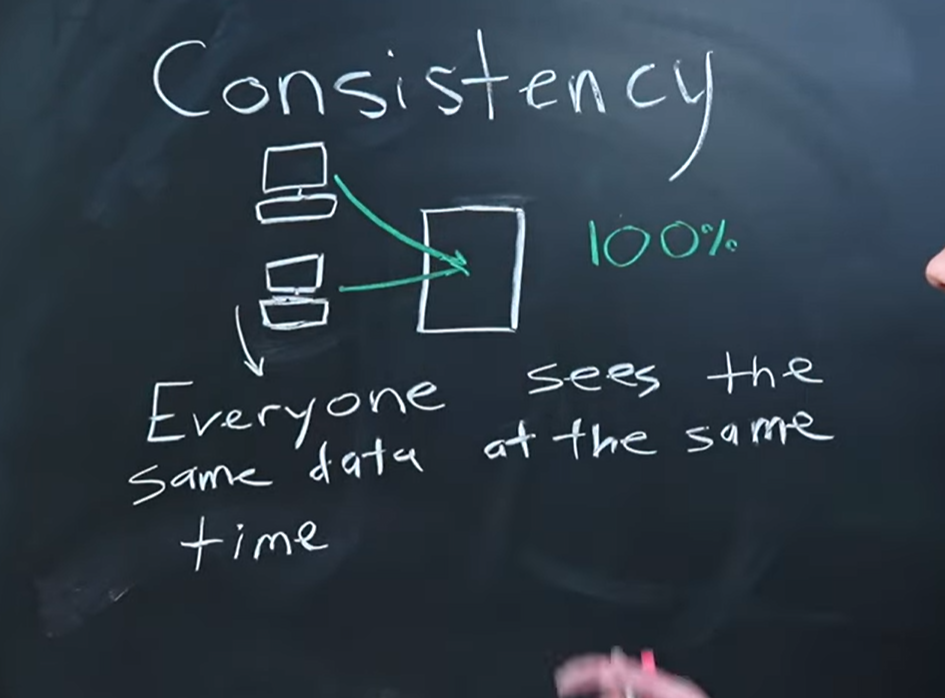 Consistency
100%
Everyone sees the
same data at the same
time